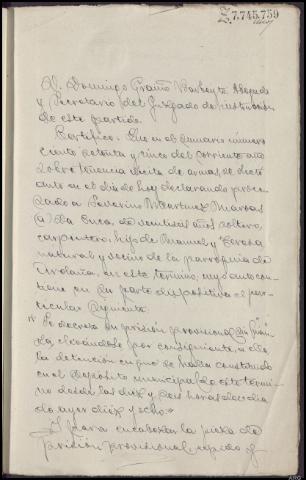 Z.7.745.759
D. Domingo Graiño Barbeyto Abogado
y Secretario del Juzgado de instrucción
de este partido.
Certifico: Que en el sumario número
ciento setenta y cinco del corriente año
sobre tenencia ilícita de armas, se dictó
auto en el día de hoy declarando proce
sado a Severino Martinez
(a) da Cuca, de veintiseis años, soltero,
carpintero, hijo de Manuel y Teresa
natural y vecino de la parroquia de
en este término, cuyo auto con
tiene en su parte dispositiva el par
ticular siguiente.
"Se decreta su prisión provisional sin fian
za, elevándose por consiguiente a ella
la detención en que se halla constituido
en el depósito municipal de este térmi
no desde las diez y seis horas del dia
de ayer diez y ocho."
Y para encabezar la pieza de
prisión provisional, expido y